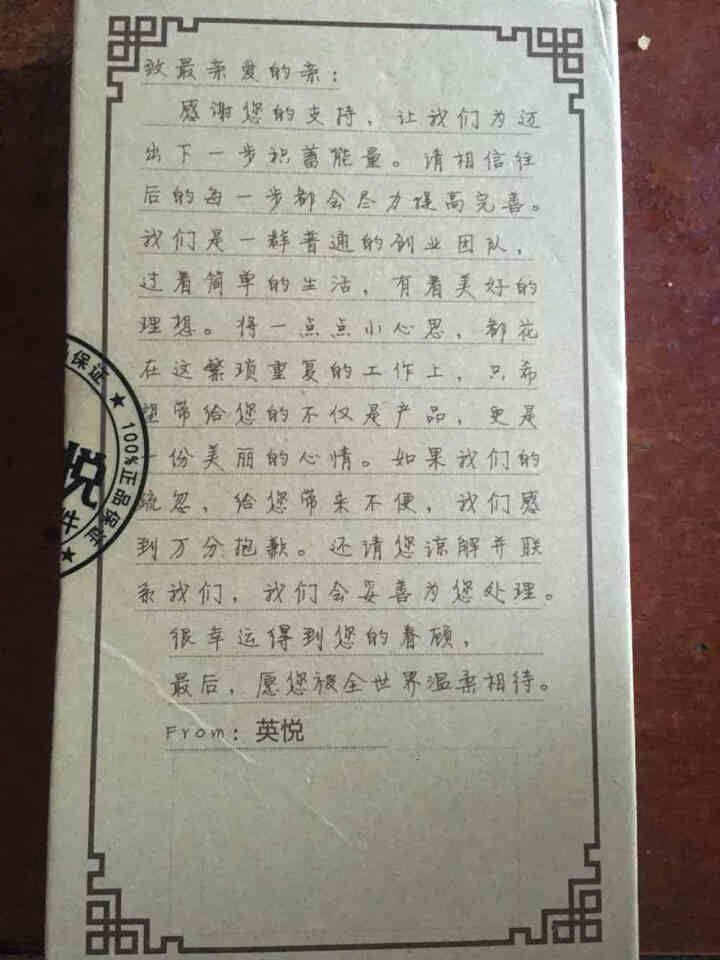 致最亲爱的亲：
感谢您的支持，让我们为迈
出下一步积蓄能量。请相信往
后的每一步都会尽力提高完善。
我们是一群普通的创业团队，
过着简单的生活，有着美好的
理想。将一点点小心思，都花
在这繁琐重复的工作上，只希
望带给您的不仅是产品，更是
一份美丽的心情。如果我们的
疏忽，给您带来不便，我们感
到万分抱歉。还请您谅解并联
系我们，我们会妥善为您处理。
很幸运得到您的眷顾，
最后，愿您被全世界温柔相待。
From：英悦
保证 ★ 100%正品保证 ★
悦
件